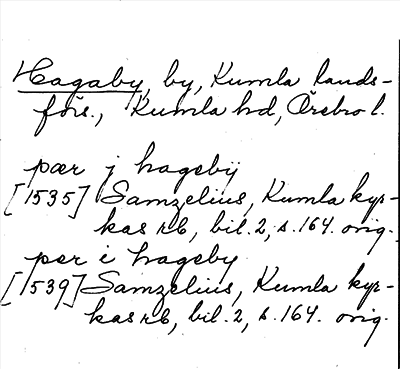 Hagaby, by, Kumla lands-
förs., Kumla hd, Örebro l.
pær j hagebÿ
[1535] Samzelius, Kumla kyr-
kas rb, bil. 2, s. 164. orig.
per i hageby
[1539] Samzelius, Kumla kyr-
kas rb, bil. 2, s. 164. orig.